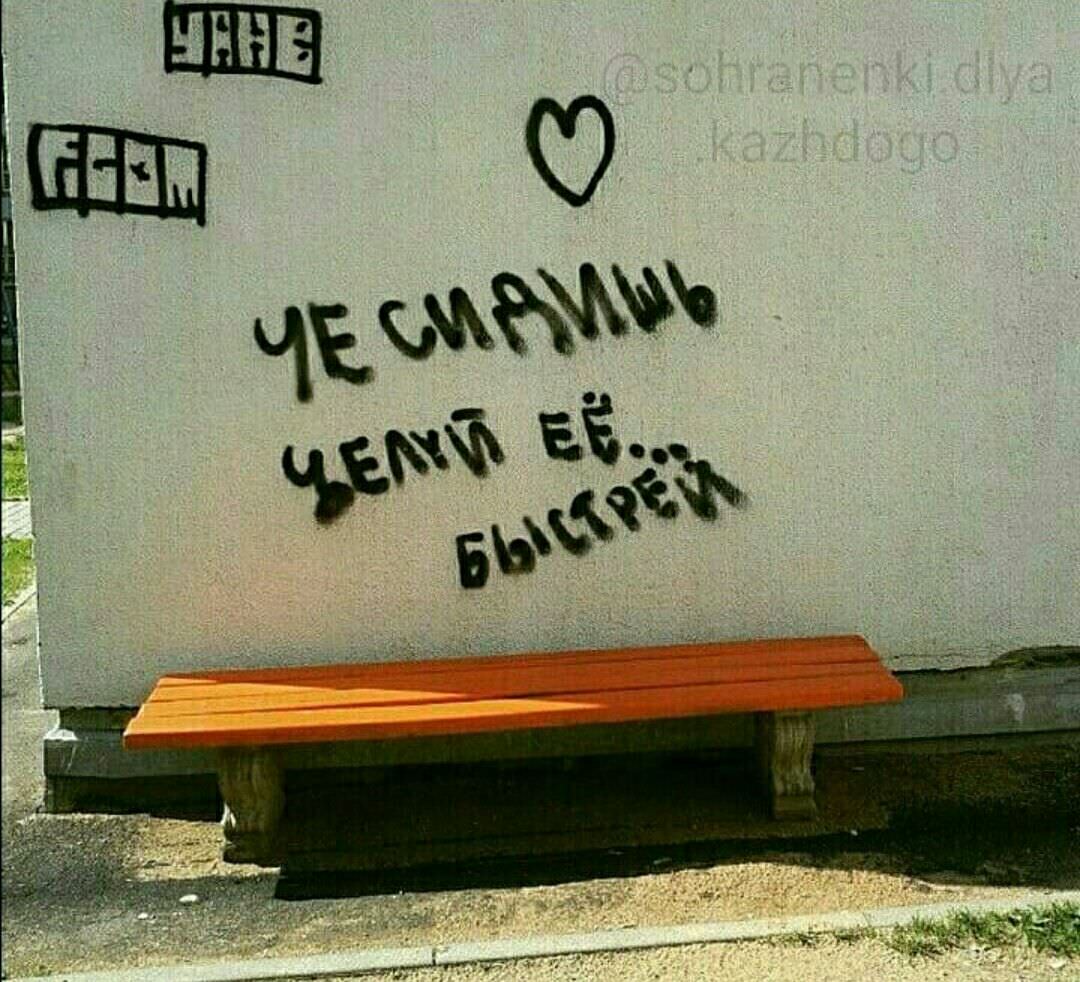 @sohranenki.dlya
.kazhdogo
ЧЕ СИДИШЬ
ЦЕЛУЙ ЕЁ...
БЫСТРЕЙ